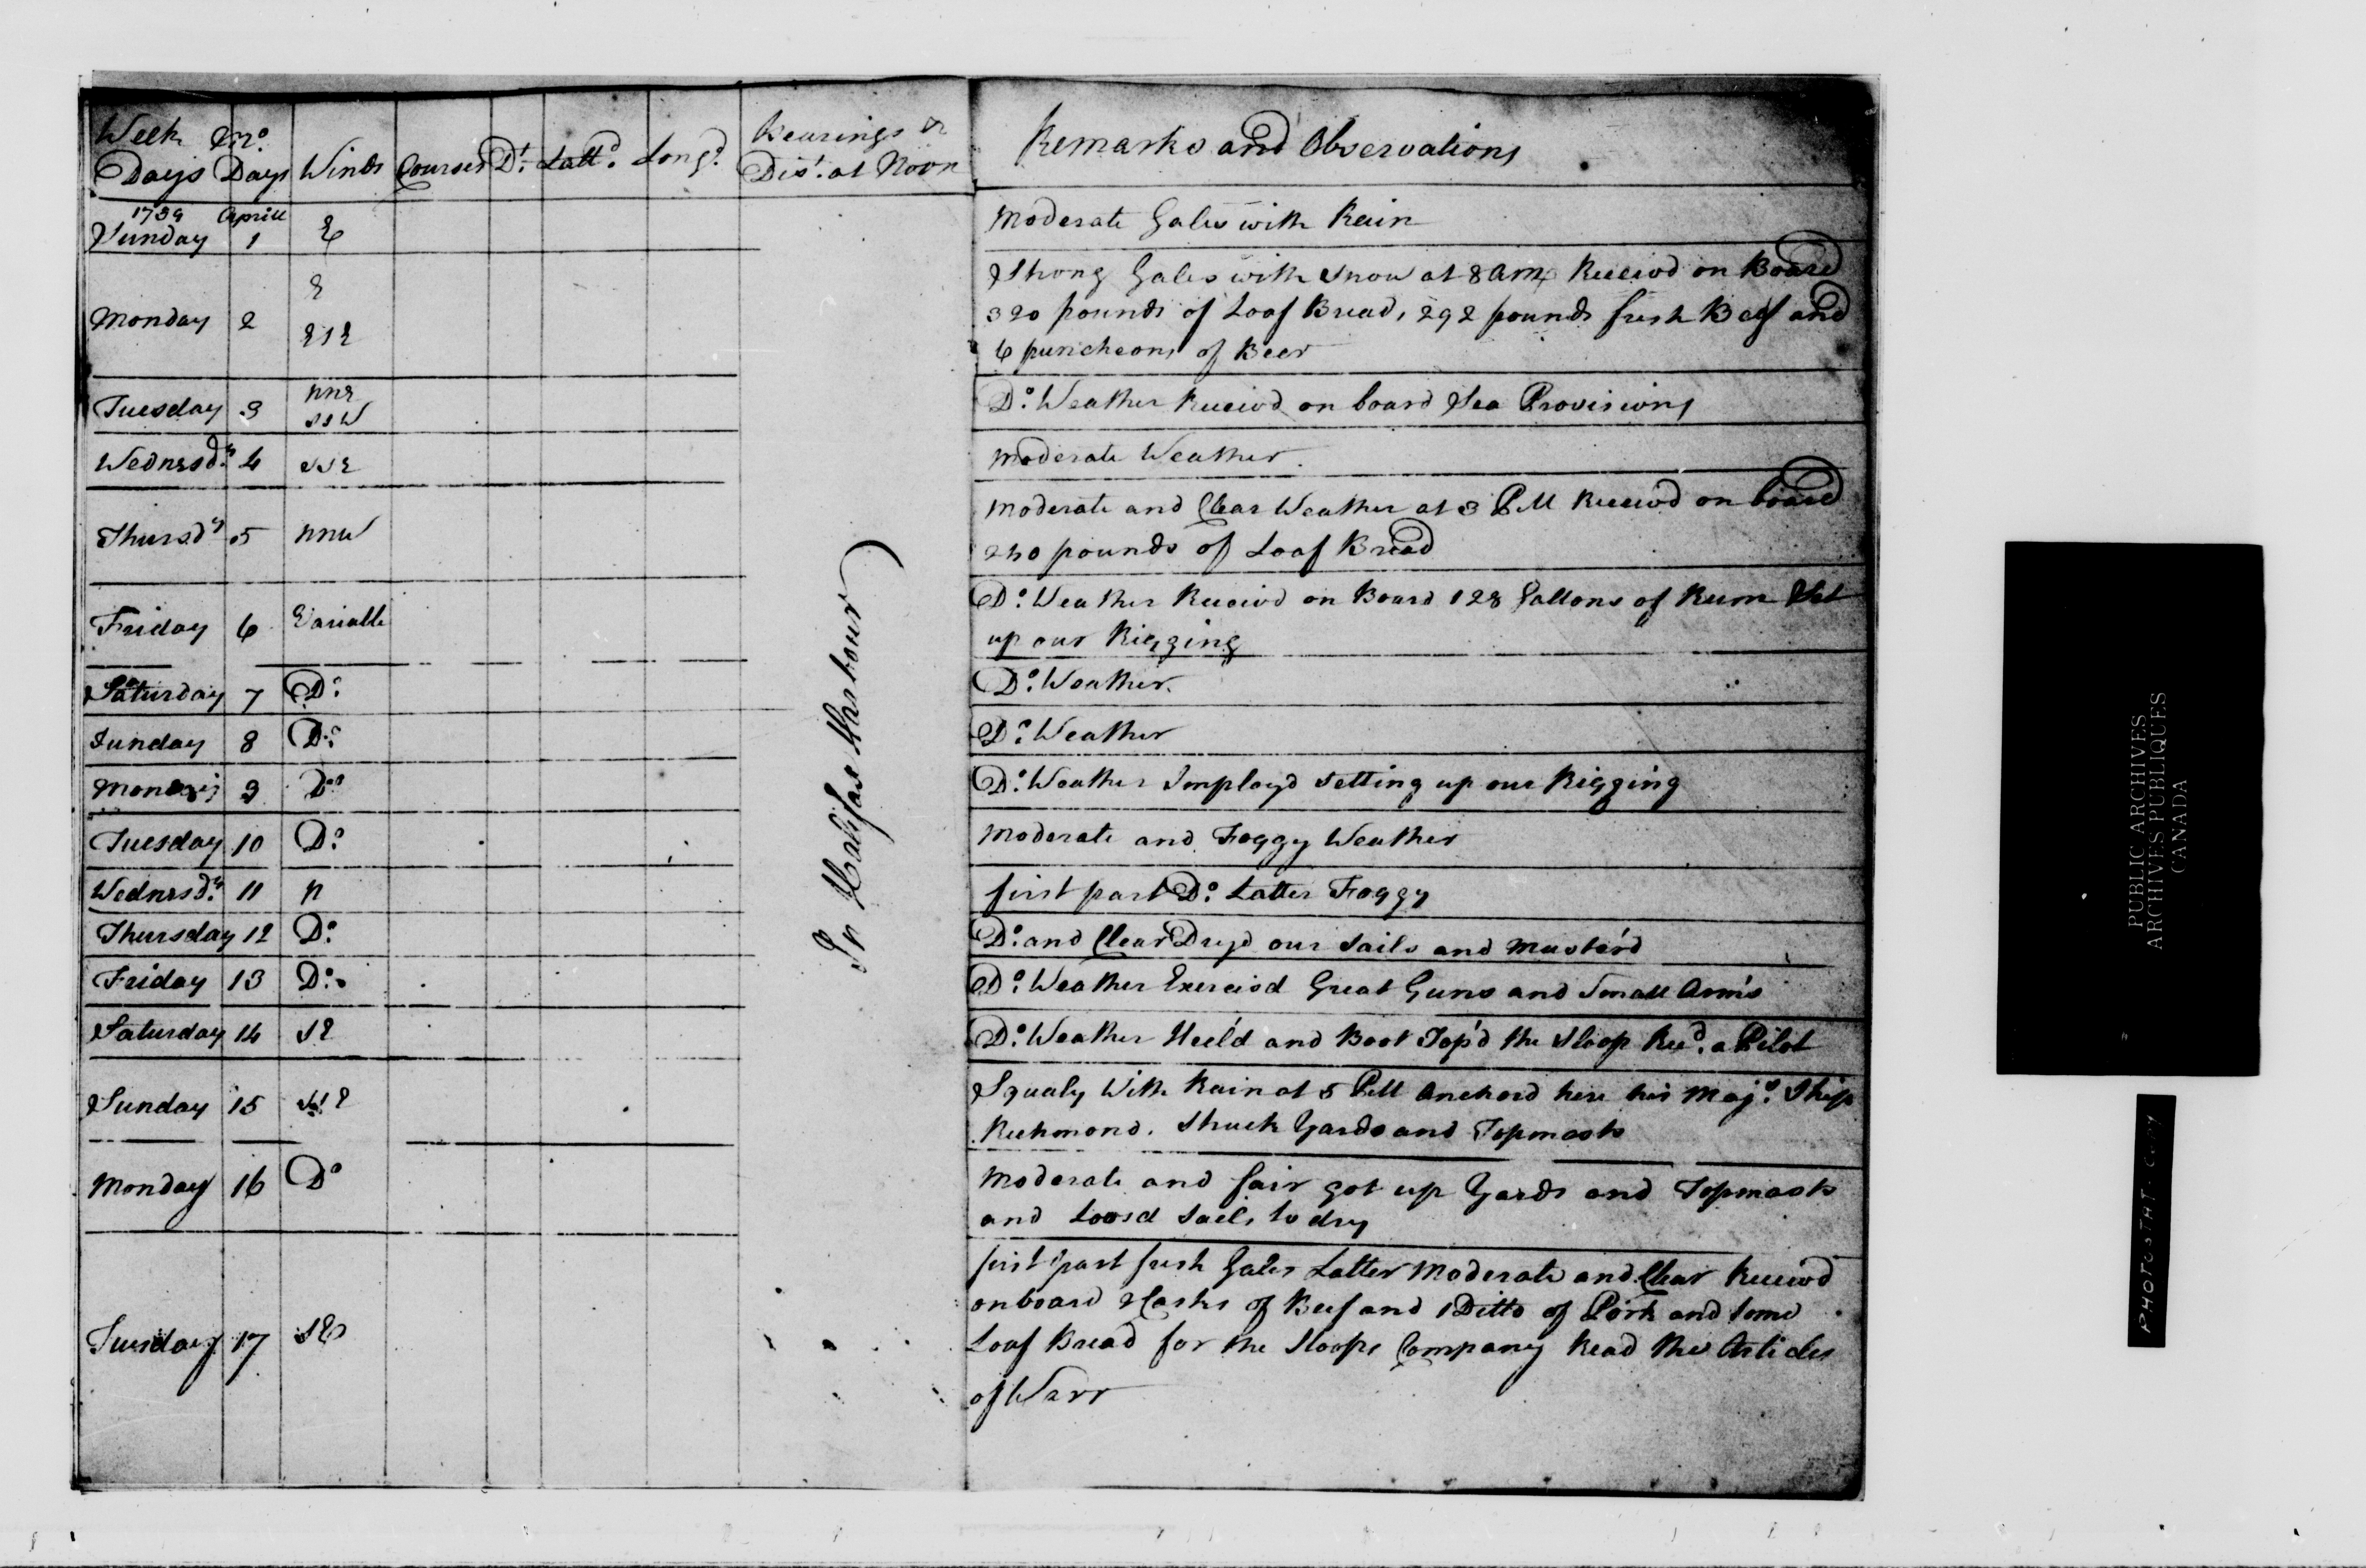 Week Mo.
Days Days Winds Courses Dt. Lattd. Longd. Bearings &
Dist. at Noon Remarks and Observations
1759 Aprill
Sunday 1 E Moderate Gales with Rain
Monday 2 E Strong Gales with Snow at 8 am Receivd on Board
ESE 320 pounds of Loaf Bread, 292 pounds fresh Beef and
6 puncheons of Beer
Tuesday 3 NNE Do. Weather Receivd on board Sea Provisions
SSW
Wednesdy. 4 SSE Moderate Weather.
Thursdy 5 NNW Moderate and Clear Weather at 3 PM Receivd on board
240 pounds of Loaf Bread
Friday 6 Variable Do. Weather Receivd on Board 128 Gallons of Rum Set
up our Rigging
Saturday 7 Do. Do. Weather.
Sunday 8 Do. Do. Weather
Monday 9 Do. Do. Weather Imployd Setting up our Rigging
Tuesday 10 Do. Moderate and Foggy Weather
Wednesdy. 11 N first part Do. Latter Foggy
Thursday 12 Do. Do. and Clear Dryd our Sails and Muster'd
Friday 13 Do. Do. Weather Exercisd Great Guns and Small Arm's
Saturday 14 SE Do. Weather Heel'd and Boot Top'd the Sloop Recd. a Pilot
Sunday 15 SSE Squaly With Rain at 5 PM Anchord here his Majs. Ship
Richmond. Struck Yards and Topmasts
Monday 16 Do Moderate and fair got up Yards and Topmasts
and Loosd Sails to dry
Tuesday 17 SE first part fresh Gales Latter Moderate and Clear Receivd
onboard 2 Casks of Beef and 1 Ditto of Pork and some
Loaf Bread for the Sloops Company Read the Articles
of Warr
In Halifax Harbour
PUBLIC ARCHIVES
ARCHIVES PUBLIQUES
CANADA
PHOTOSTAT COPY